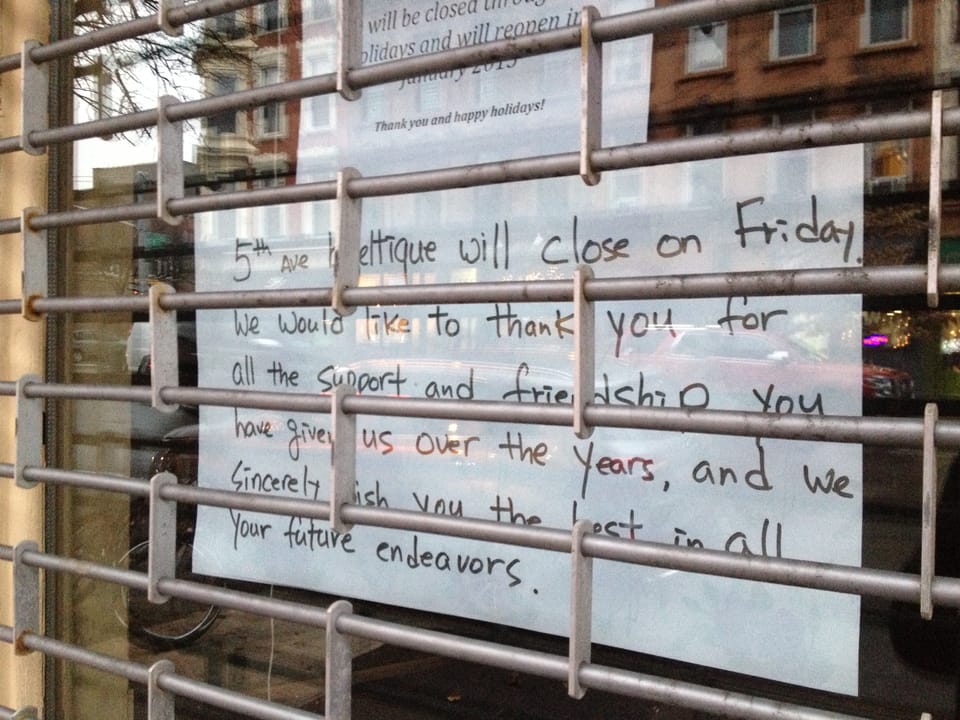 will be closed through
holidays and will reopen in
January 2013
Thank you and happy holidays!
5th Ave eltique will close on Friday.
We would like to thank you for
all the support and friendship you
have given us over the years, and we
sincerely wish you the best in all
your future endeavors.